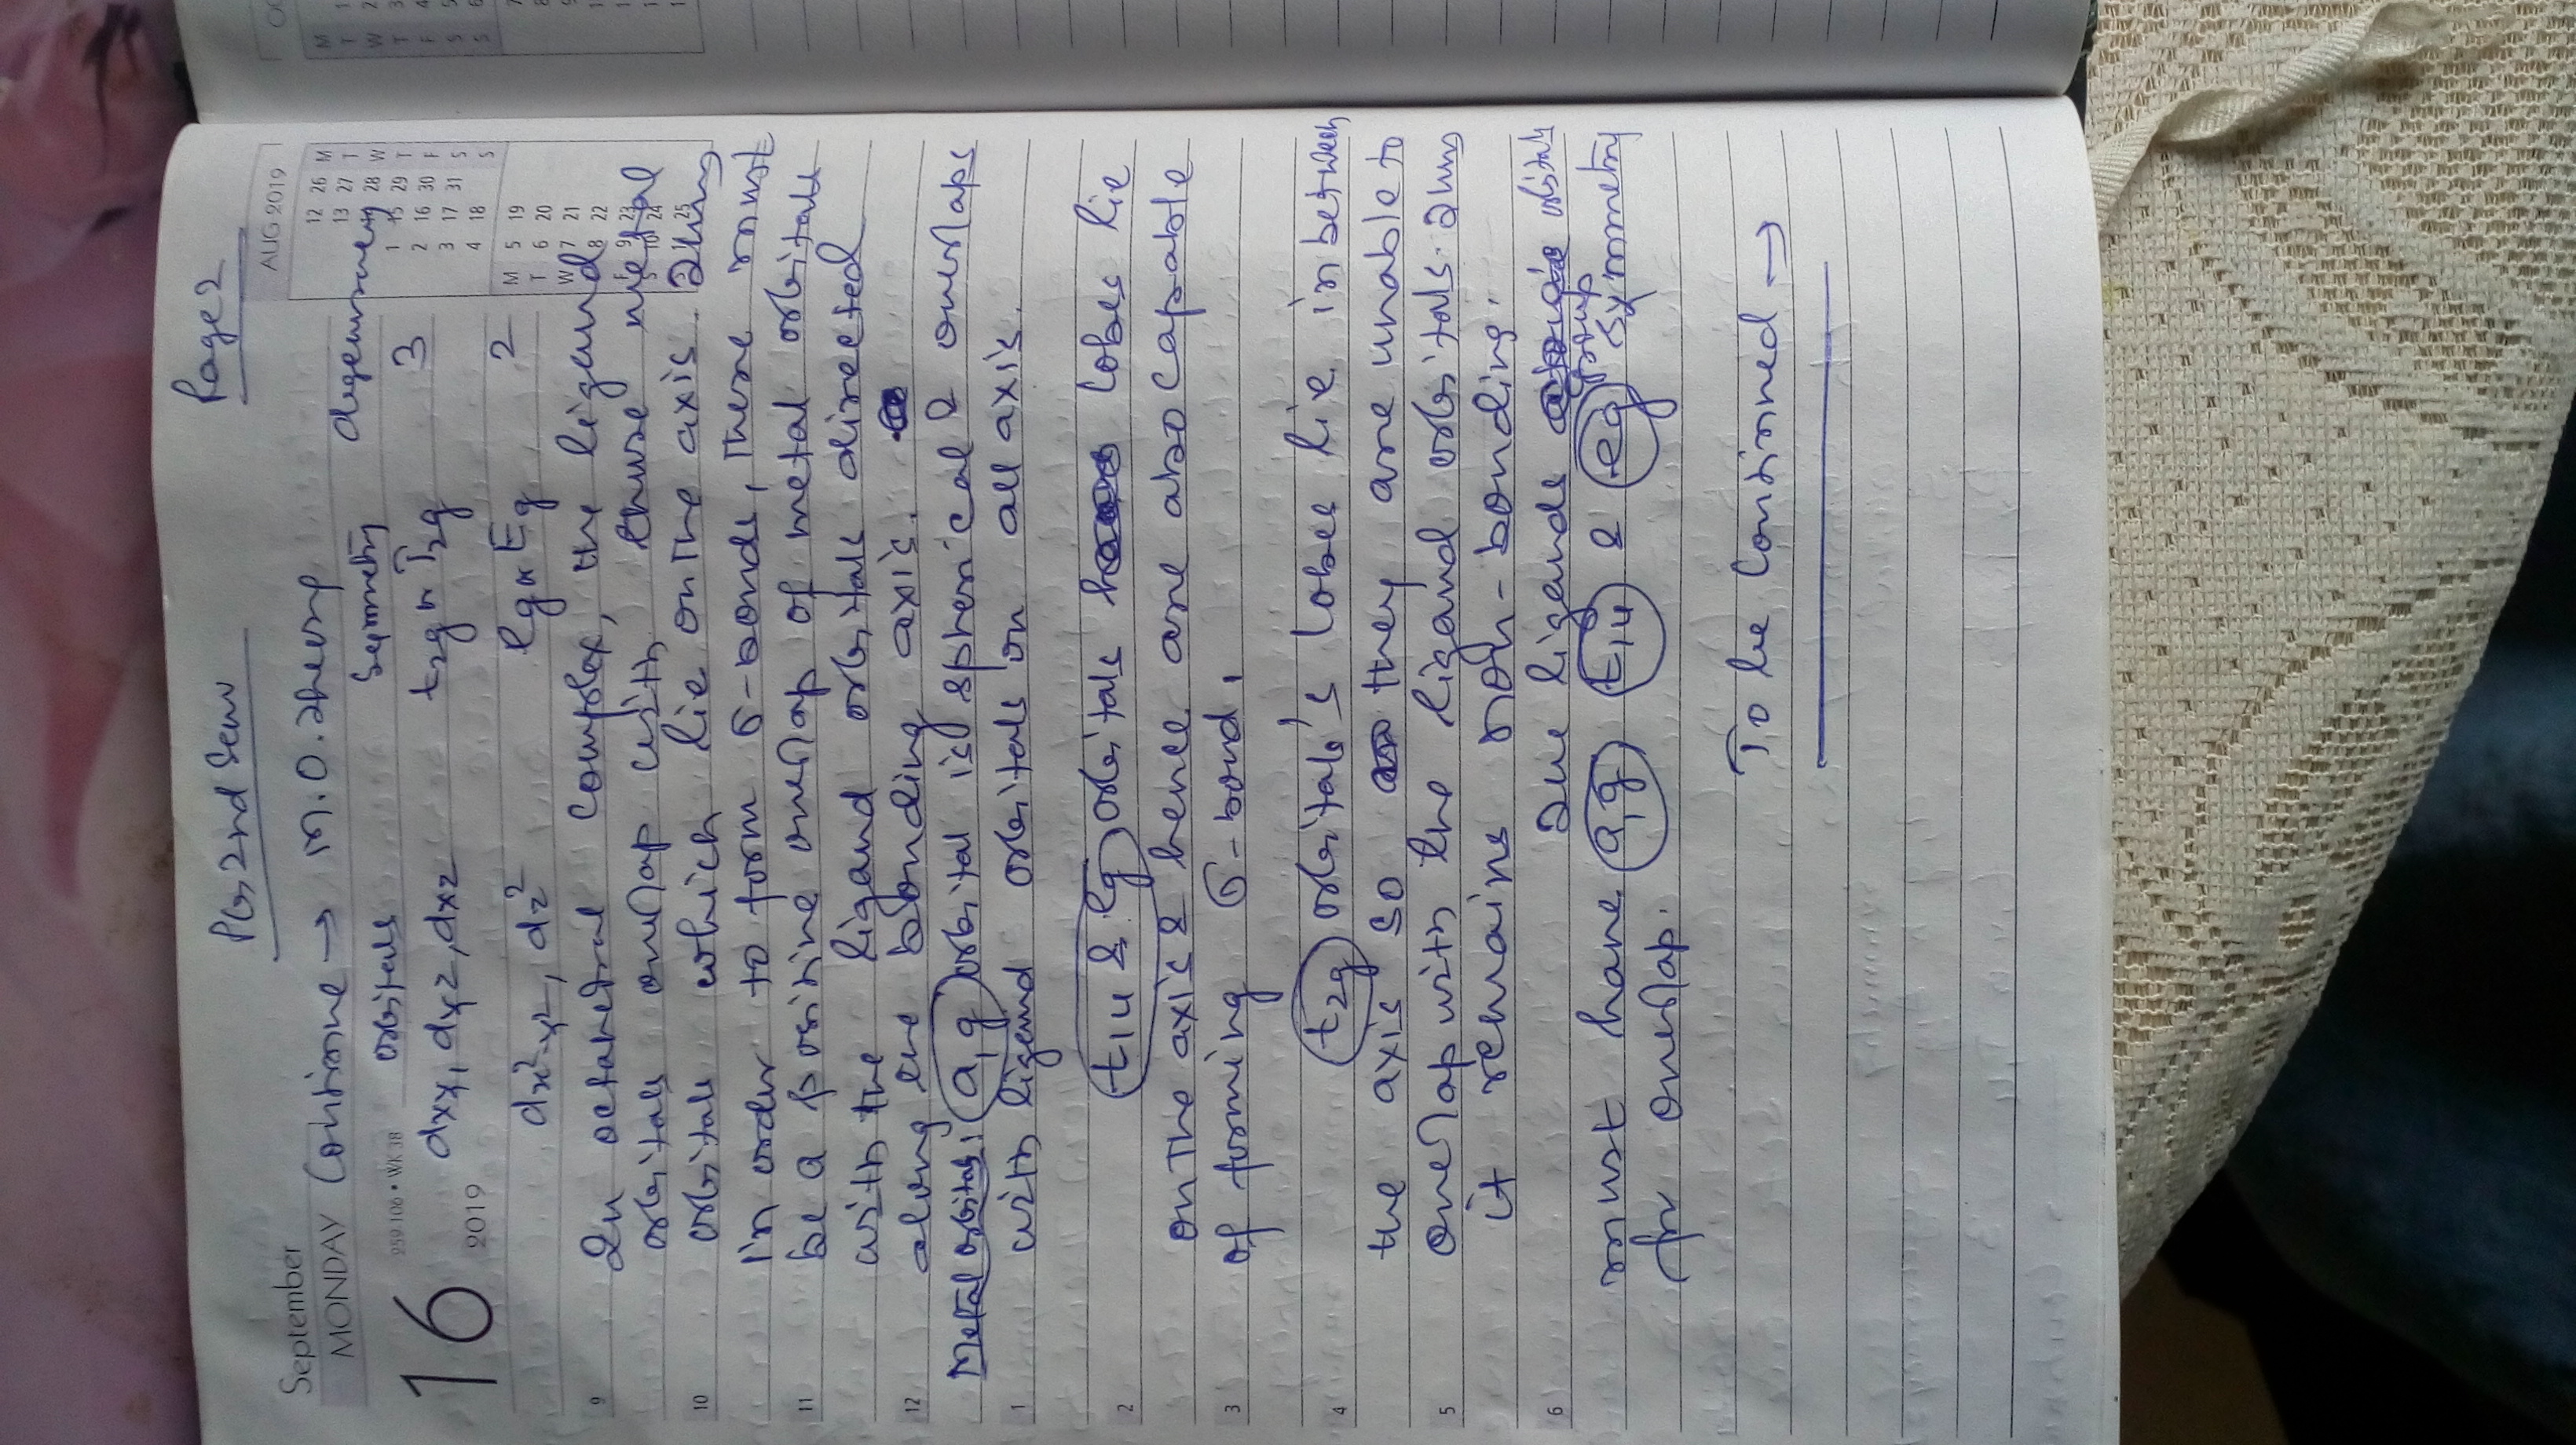 PG, 2nd Sem Page 2
September
MONDAY Continue → M.O. Theory
AUG 2019
16
259.106 • WK 38
2019
orbitals Symmetry degeneracy
dxy, dyz, dxz t2g or T2g 3
dx²-y², dz² eg or Eg 2
M 5 12 19 26
T 6 13 20 27
W 7 14 21 28
T 1 8 15 22 29
F 2 9 16 23 30
S 3 10 17 24 31
S 4 11 18 25
9 In octahedral complex, the ligand
orbitals overlap with those metal
10 orbitals which lie on the axis. Thus
in order to form σ-bonds, there must
11 be a positive overlap of metal orbitals
with the ligand orbitals directed
12 along the bonding axis.
Metal orbitals a1g orbital is spherical & overlaps
1 with ligand orbitals on all axis.
2 t1u & eg orbitals lobes lie
on the axis & hence are also capable
3 of forming σ-bond.
4 t2g orbital's lobes lie in between
the axis so they are unable to
5 overlap with the ligand orbitals. Thus
it remains non-bonding.
6 Due ligands group orbitals
must have a1g, t1u & eg symmetry
for overlap.
To be Continued →
M
T
W
T
F
S
S